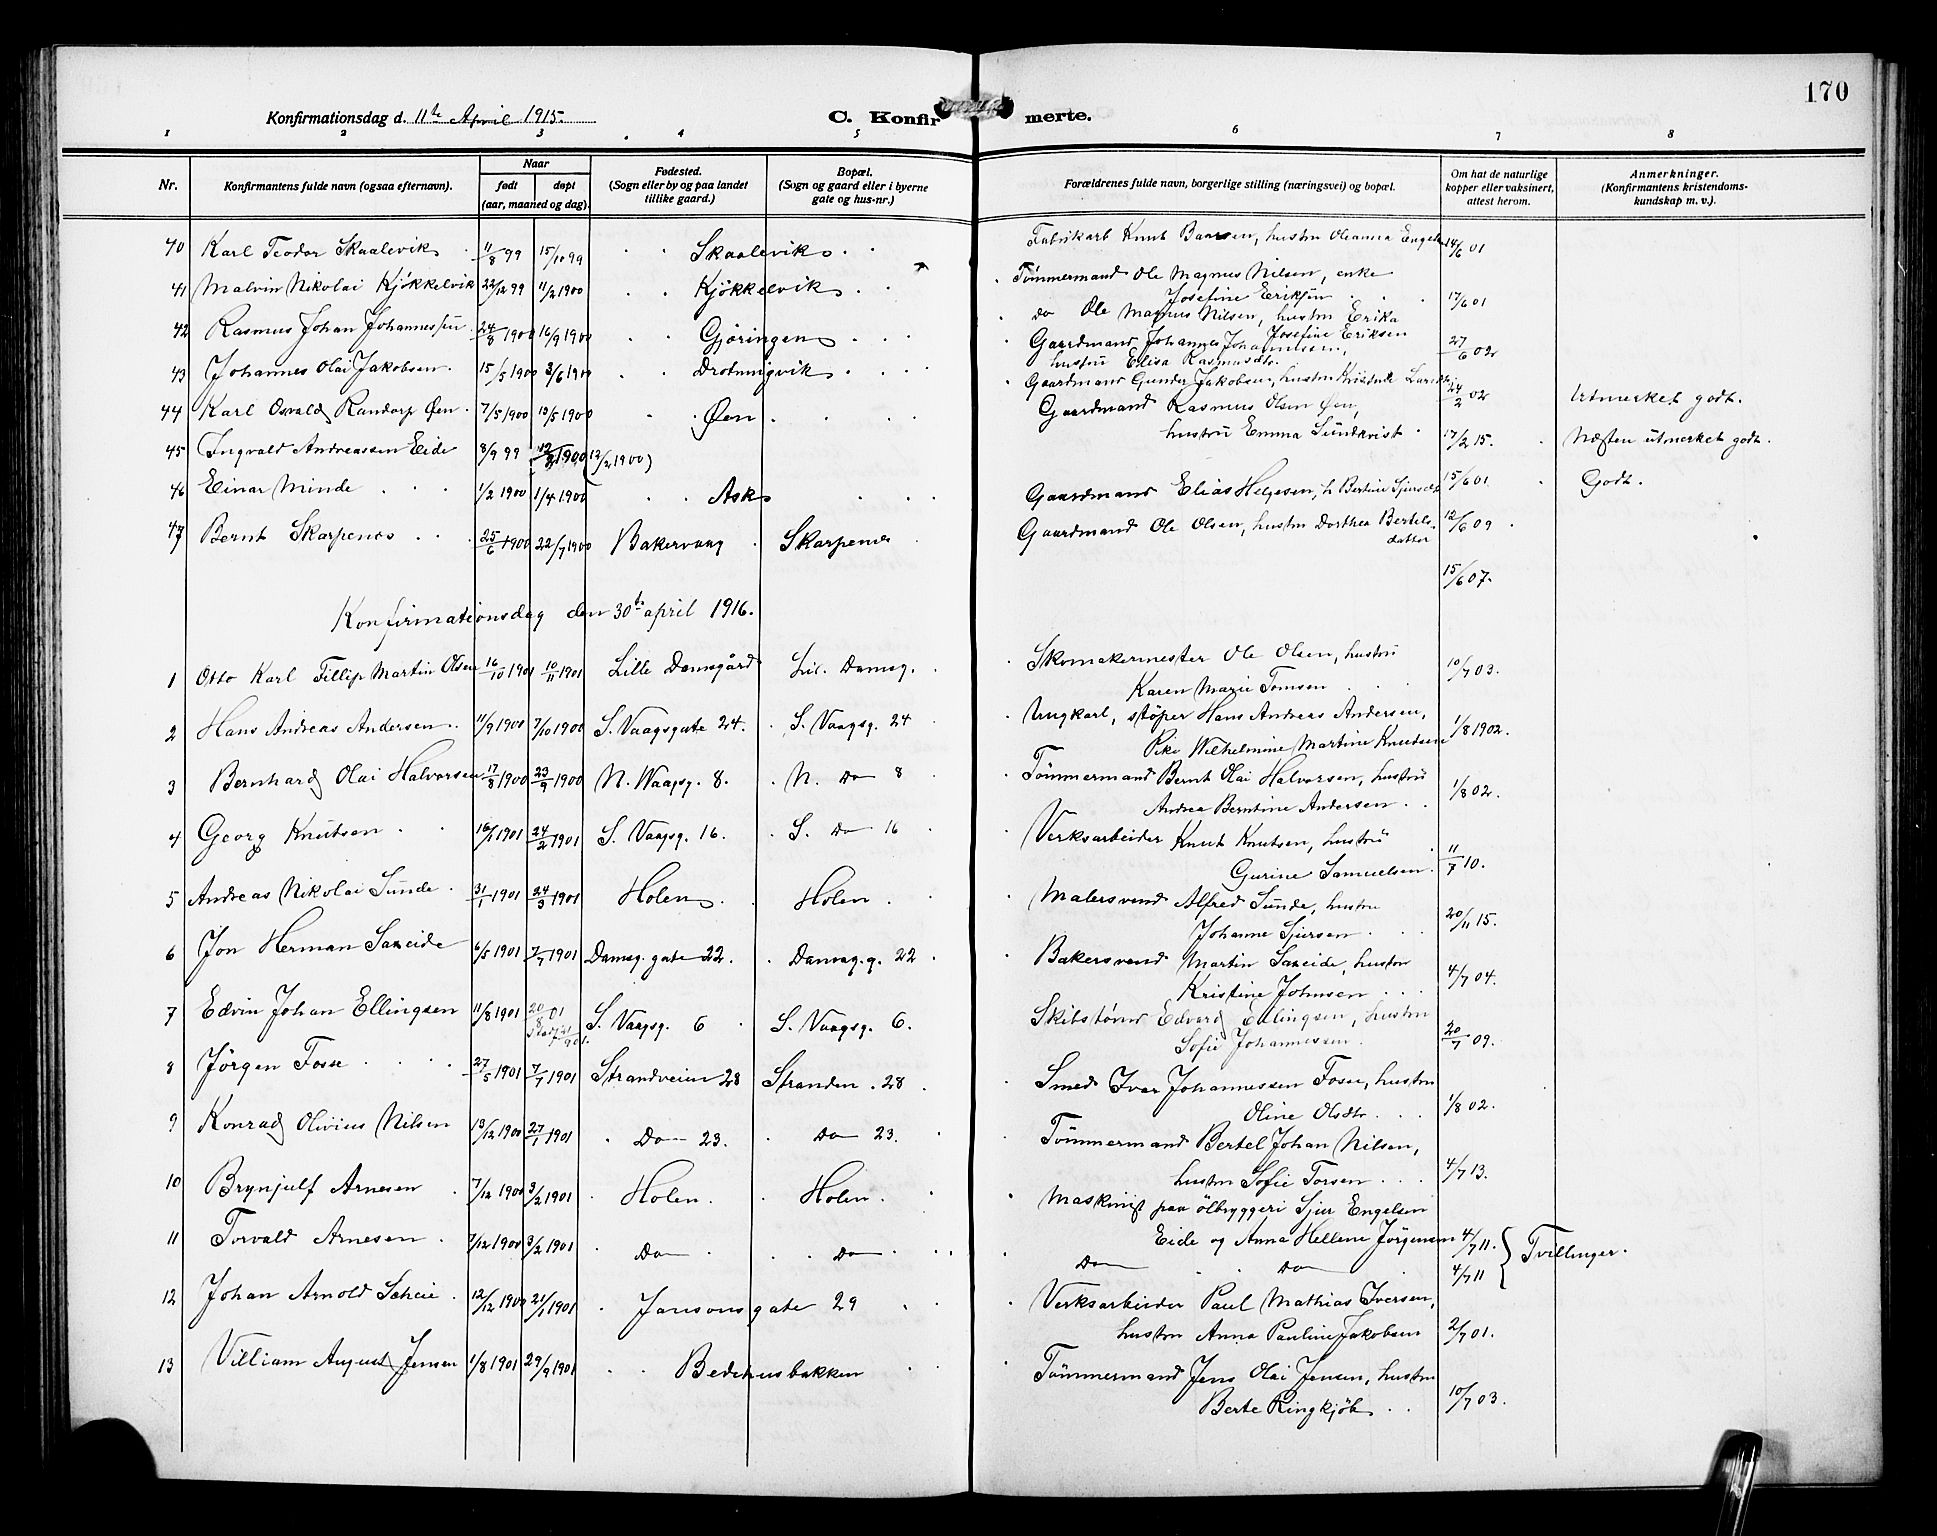 170
Konfirmationsdag d. 11te April 1915.
C. Konfirmerte.
1 2 3 4 5 6 7 8
Nr.
Konfirmantens fulde navn (ogsaa efternavn).
Naar
født
døpt
(aar, maaned og dag).
Fødested.
(Sogn eller by og paa landet
tillike gaard.)
Bopæl.
(Sogn og gaard eller i byerne
gate og hus-nr.)
Forældrenes fulde navn, borgerlige stilling (næringsvei) og bopæl.
Om hat de naturlige
kopper eller vaksinert,
attest herom.
Anmerkninger.
(Konfirmantens kristendoms-
kundskap m. v.).
40 Karl Teodor Skaalevik 11/8 99 15/10 99 Skaalevik Fabrikarb Knut Baarsen, hustru Oleanna 14/6 01
41 Malvin Nikolai Kjökkelvik 22/12 99 11/2 1900 Kjökkelvik Tömmermand Ole Magnus Nilsen, enke
Josefine Eriksen 17/6 01
do Ole Magnus Nilsen, hustru Erika
Josefine Eriksen
42 Rasmus Johan Johannessen 24/8 1900 16/9 1900 Gjöringen Gaardmand Johannes Johannesen,
hustru Elisa Rasmusdtr. 27/6 02
43 Johannes Olai Jakobsen 15/5 1900 3/6 1900 Drotningvik Gaardmand Gunder Jakobsen, hustru 24/2 02 Utmerket godt.
44 Karl Osvald Randorp Øen 7/5 1900 13/5 1900 Øen Gaardmand Rasmus Olsen Øen,
hustru Emma Sundkvist 17/2 15. Næsten utmerket godt.
45 Ingvald Andreassen Eide 8/9 99 (12/2 1900)
15/6 01 Godt.
46 Einar Minde 1/2 1900 1/4 1900 Ask Gaardmand Elias Helgesen, h. Bertine Sjursdt
47 Bernt Skarpenes 25/6 1900 22/7 1900 Bakervaag Skarpenes Gaardmand Ole Olsen, hustru Dorthea Bertels-
datter 12/6 09
15/6 07.
Konfirmationsdag den 30te april 1916.
1 Otto Karl Fillip Martin Olsen 16/10 1901 10/11 1901 Lille Damsgård Lil. Damsg. Skomakermester Ole Olsen, hustru
Karen Marie Tomsen 10/7 03.
2 Hans Andreas Andersen 11/9 1900 7/10 1900 S. Vaagsgate 24. S. Vaagsg. 24 Ungkarl, støper Hans Andreas Andersen,
Pike Wilhelmine Martine Knudsen 1/8 1902.
3 Bernhard Olai Halvorsen 17/8 1900 23/9 1900 N. Waagsg. 8. N. Do 8 Tömmermand Bernt Olai Halvorsen, hustru
Andrea Berntine Andersen 1/8 02.
4 Georg Knutsen 16/1 1901 24/2 1901 S. Vaagsg. 16. S. Do 16 Verksarbeider Knut Knutsen, hustru
Gurine Samuelsen 11/7 10.
5 Andreas Nikolai Sunde 31/1 1901 24/3 1901 Holen Holen Malersvend Alfred Sunde, hustru
Johanne Sjursen 20/11 15.
6 Jon Herman Saxeide 6/5 1901 7/7 1901 Damsg. gate 22. Damsg.g. 22 Bakersvend Martin Saxeide, hustru
Kristine Johnsen 4/7 04.
7 Edvin Johan Ellingsen 11/8 1901 20/8 01 S. Vaagsg. 6 S. Vaagsg. 6. Skibstömr Edvard Ellingsen, hustru
Sofie Johannessen 20/7 09.
8 Jörgen Fosse 27/5 1901 7/7 1901 Strandveien 28 Stranden. 28 Smed Ivar Johannessen Fosse, hustru
Oline Olsdtr 1/8 02.
9 Konrad Olivius Nilsen 13/12 1900 27/1 1901 Do 23. Do 23. Tömmermand Bertel Johan Nilsen,
hustru Sofie Torsen 4/7 13.
10 Brynjulf Arnesen 7/12 1900 3/2 1901 Holen. Holen. Maskinist paa ölbryggeri Sjur Engelsen
Eide og Anna Hellene Jörgensen 4/7 11.
11 Torvald Arnesen 7/12 1900 3/2 1901 Do Do Do Do 4/7 11 } Tvillinger.
12 Johan Arnold Scheie 12/12 1900 21/1 1901 Jansonsgate 29 Verksarbeider Paul Mathias Iversen,
hustru Anna Pauline Jakobsen 2/7 01.
13 Villiam August Jensen 1/8 1901 29/9 1901 Bedehusbakken Tömmermand Jens Olai Jensen, hustru
Berte Ringkjöb 10/7 03.